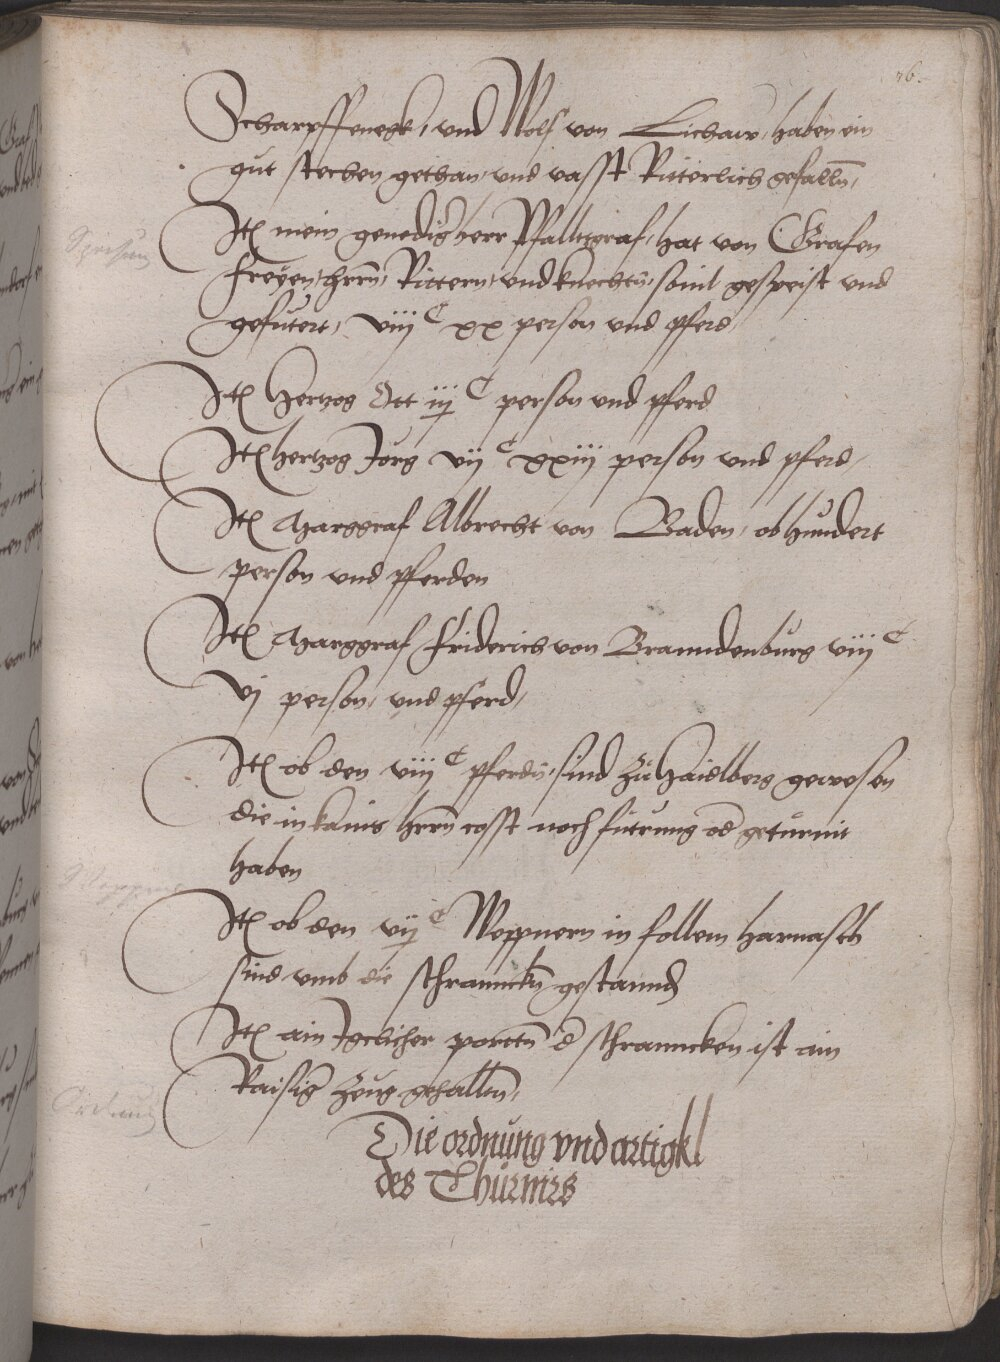 76.
Scharpffenegk, vnd Wolf von Lichaw, haben ein
gut stechen gethan, vnd vasst Ritterlich gefalln̄,
Itē mein genedig̃ herr Pfalltzgraf, hat von Grafen
freyen, hrrn̄, Rittern, vnd knechtn̄, souil gespeist vnd
gefutert, viij C xx person vnd pferd
Itē Hertzog Ott iij C person vnd pferd
Itē hertzog Jorg vij C xxiij person vnd pferd,
Itē Marggraf Albrecht von Baden, ob hundert
person vnd pferden
Itē Marggraf Friderich von Branndenburg viij C
vj person, vnd pferd,
Itē ob den viij C pferdn̄, sind zu Haidlberg gewesen
die in kains hrrn̄ cosst noch futrung od̃ geturnit
haben
Itē ob den vij C Weppnern in follem harnasch
sind vmb die schrannckn̄ gestannd̄
Itē ain Jgclicher porttn̄ d̃ schranncken ist ain
Raisig̃ zeug gehalltn̄,
Die ordnung vnd artigkl
des Thurnirs